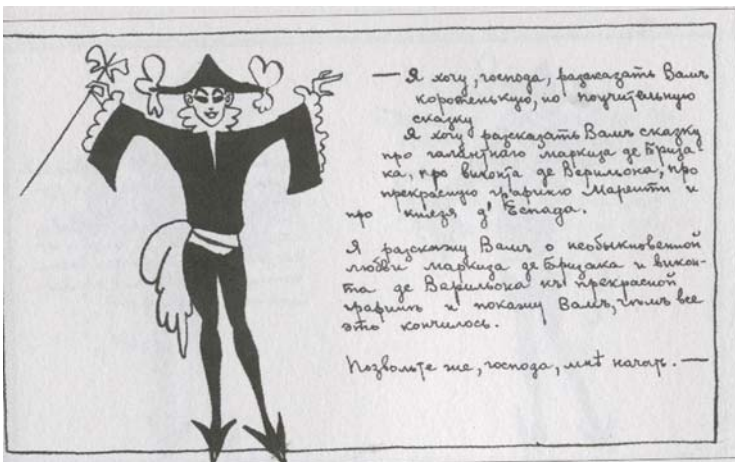 — Я хочу, господа, разсказать Вамъ
коротенькую, но поучительную
сказку
Я хочу разсказать Вамъ сказку
про галантнаго маркиза де Бриза-
ка, про виконта де Верильока, про
прекрасную графиню Маретти и
про князя д' Еспада.
Я разскажу Вамъ о необыкновенной
любви маркиза де Бризака и викон-
та де Верильока къ прекрасной
графинѣ и покажу Вамъ, чѣмъ все
это кончилось.
Позвольте же, господа, мнѣ начать. —